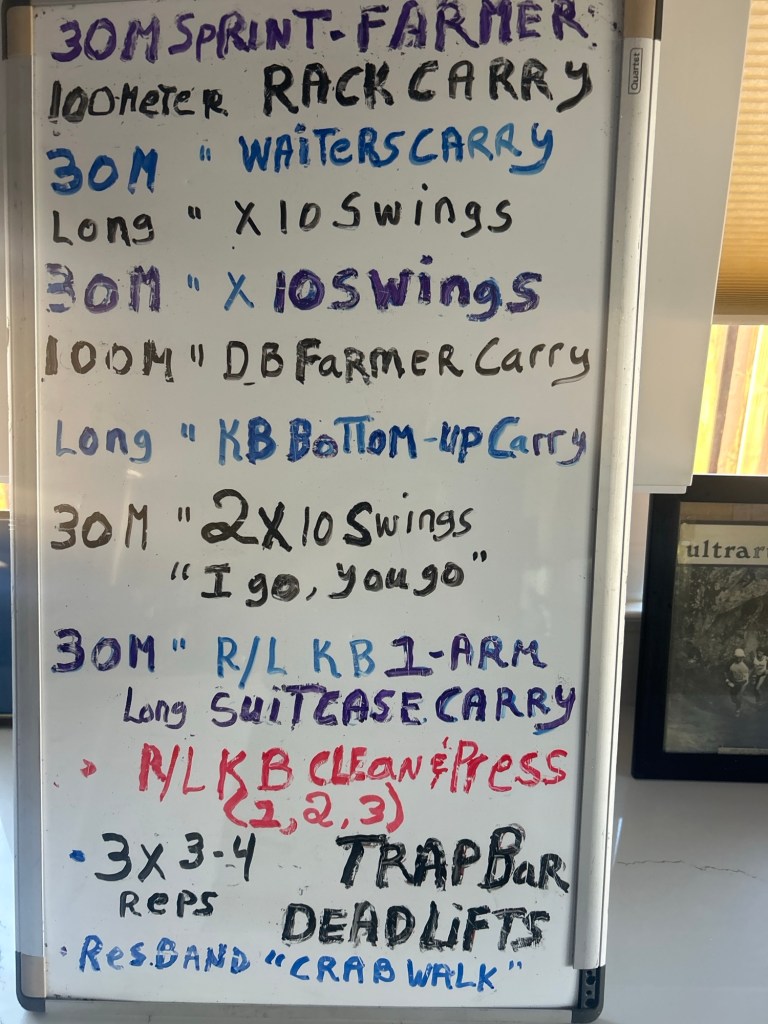 30M SPRINT-FARMER
100 Meter RACK CARRY
30M " WAiTERS CARRY
Long " X 10 Swings
30M " X 10 Swings
100M " DB FaRMER Carry
Long " KB BoTTOM-UP Carry
30M " 2X10 Swings
"I go, you go"
30M " R/L KB 1-ARM
Long SUiTCASE CARRY
R/L KB CLEaN & PRess
(1, 2, 3)
• 3x 3-4 TRAP BaR
Reps DEADLiFTS
• Res. BAND "CRAB WALK"
Quartet
ultraru